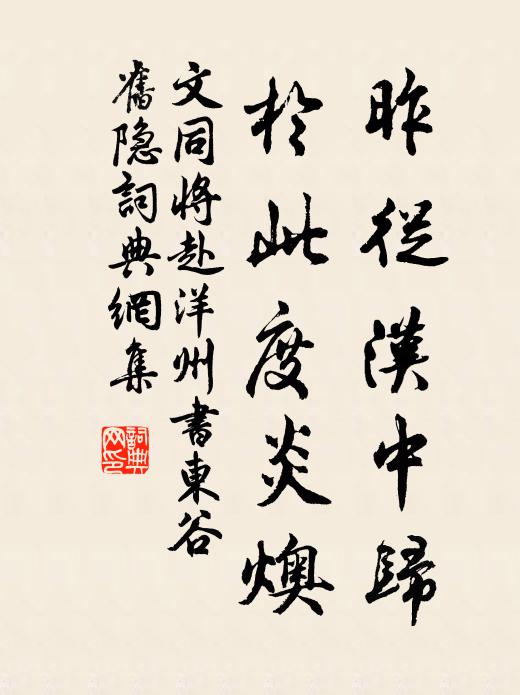 昨從漢中歸
於此度炎燠
文同將赴洋州書東谷
舊隐詞典網集
詞典網印